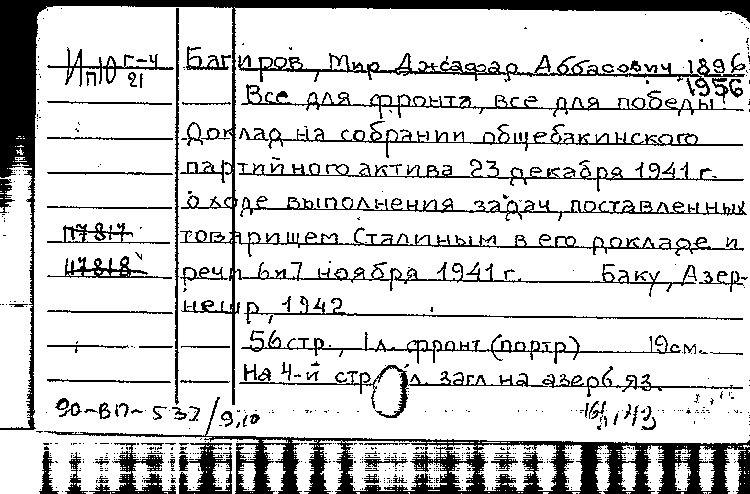 Ип10 Г-4 Багиров, Мир Джафар Аббасович 1896
21 1956
Все для фронта, все для победы!
Доклад на собрании общебакинского
партийного актива 23 декабря 1941 г.
о ходе выполнения задач, поставленных
п7817 товарищем Сталиным в его докладе и
п7818 речи 6 и 7 ноября 1941 г. Баку, Азер-
нешр, 1942
56 стр., 1 л. фронт (портр) 19 см.
На 4-й стр. л. загл. на азерб. яз.
90-ВП-532/9,10